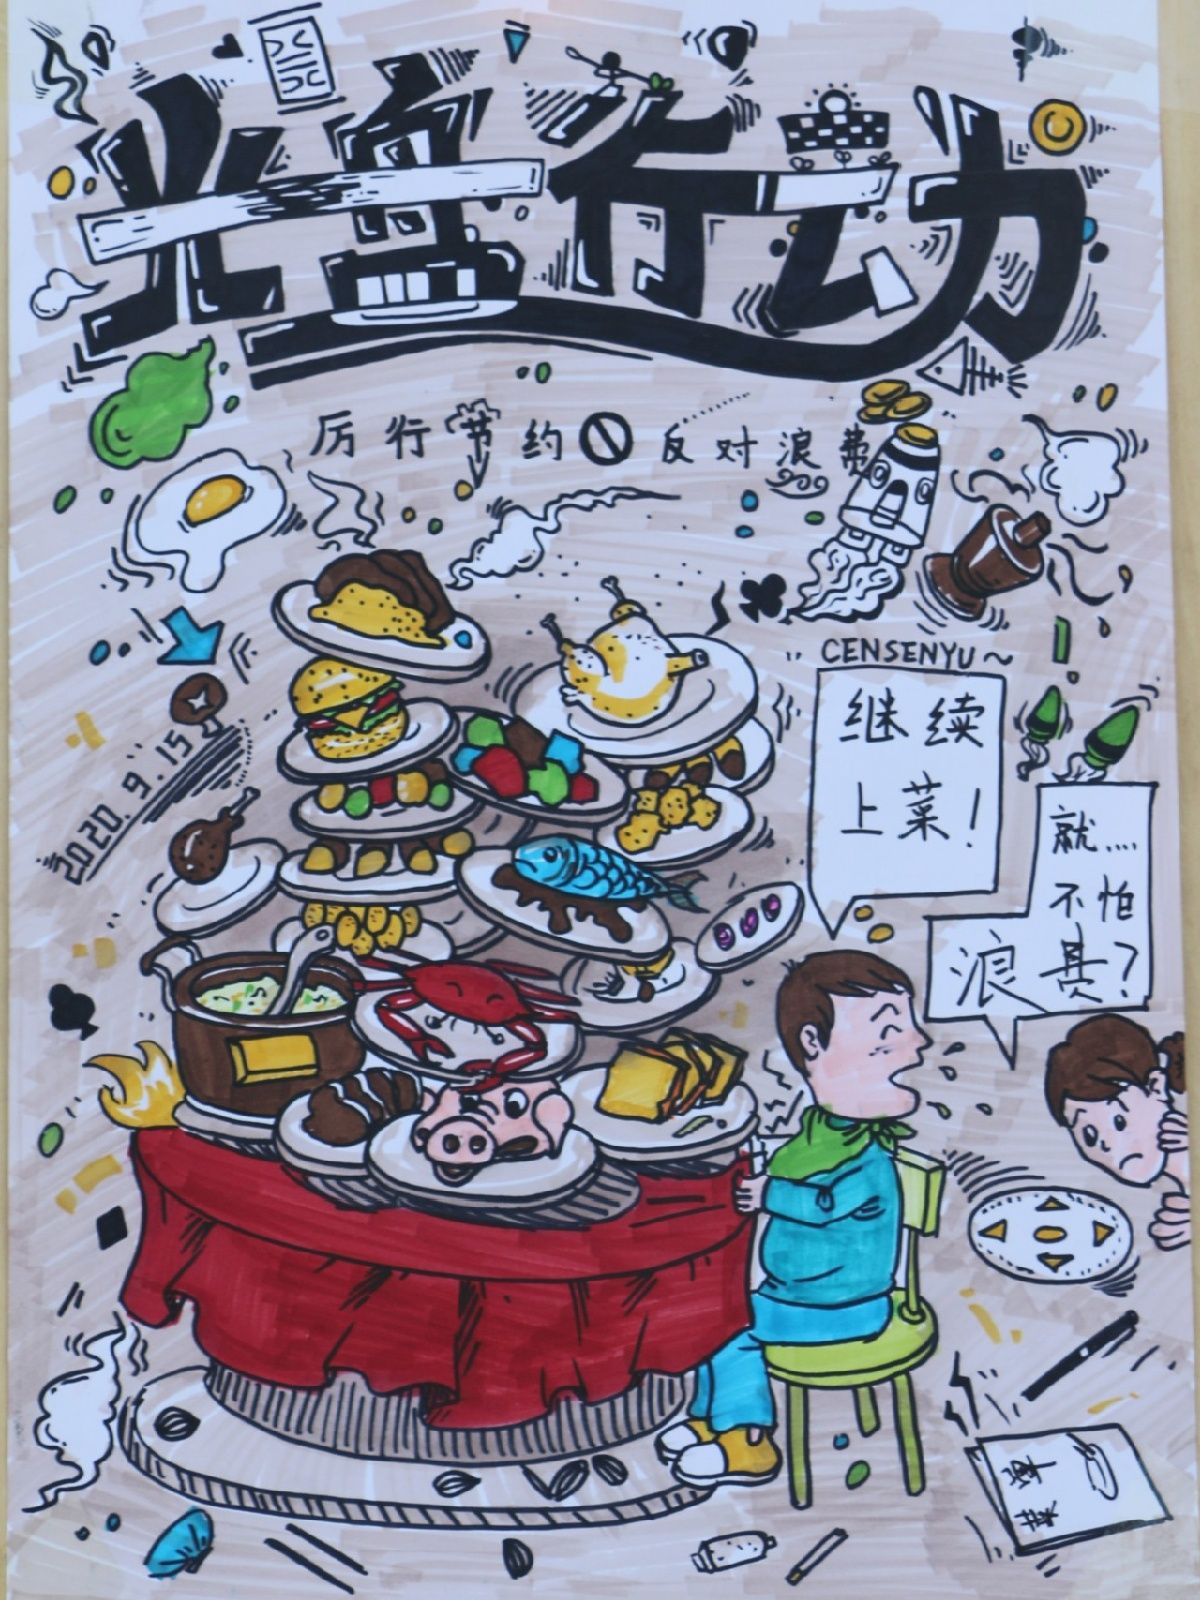 光盘行动
厉行节约 反对浪费
CENSENYU~
继续
上菜！
就....
不怕
浪费？
2020.9.15
菜单